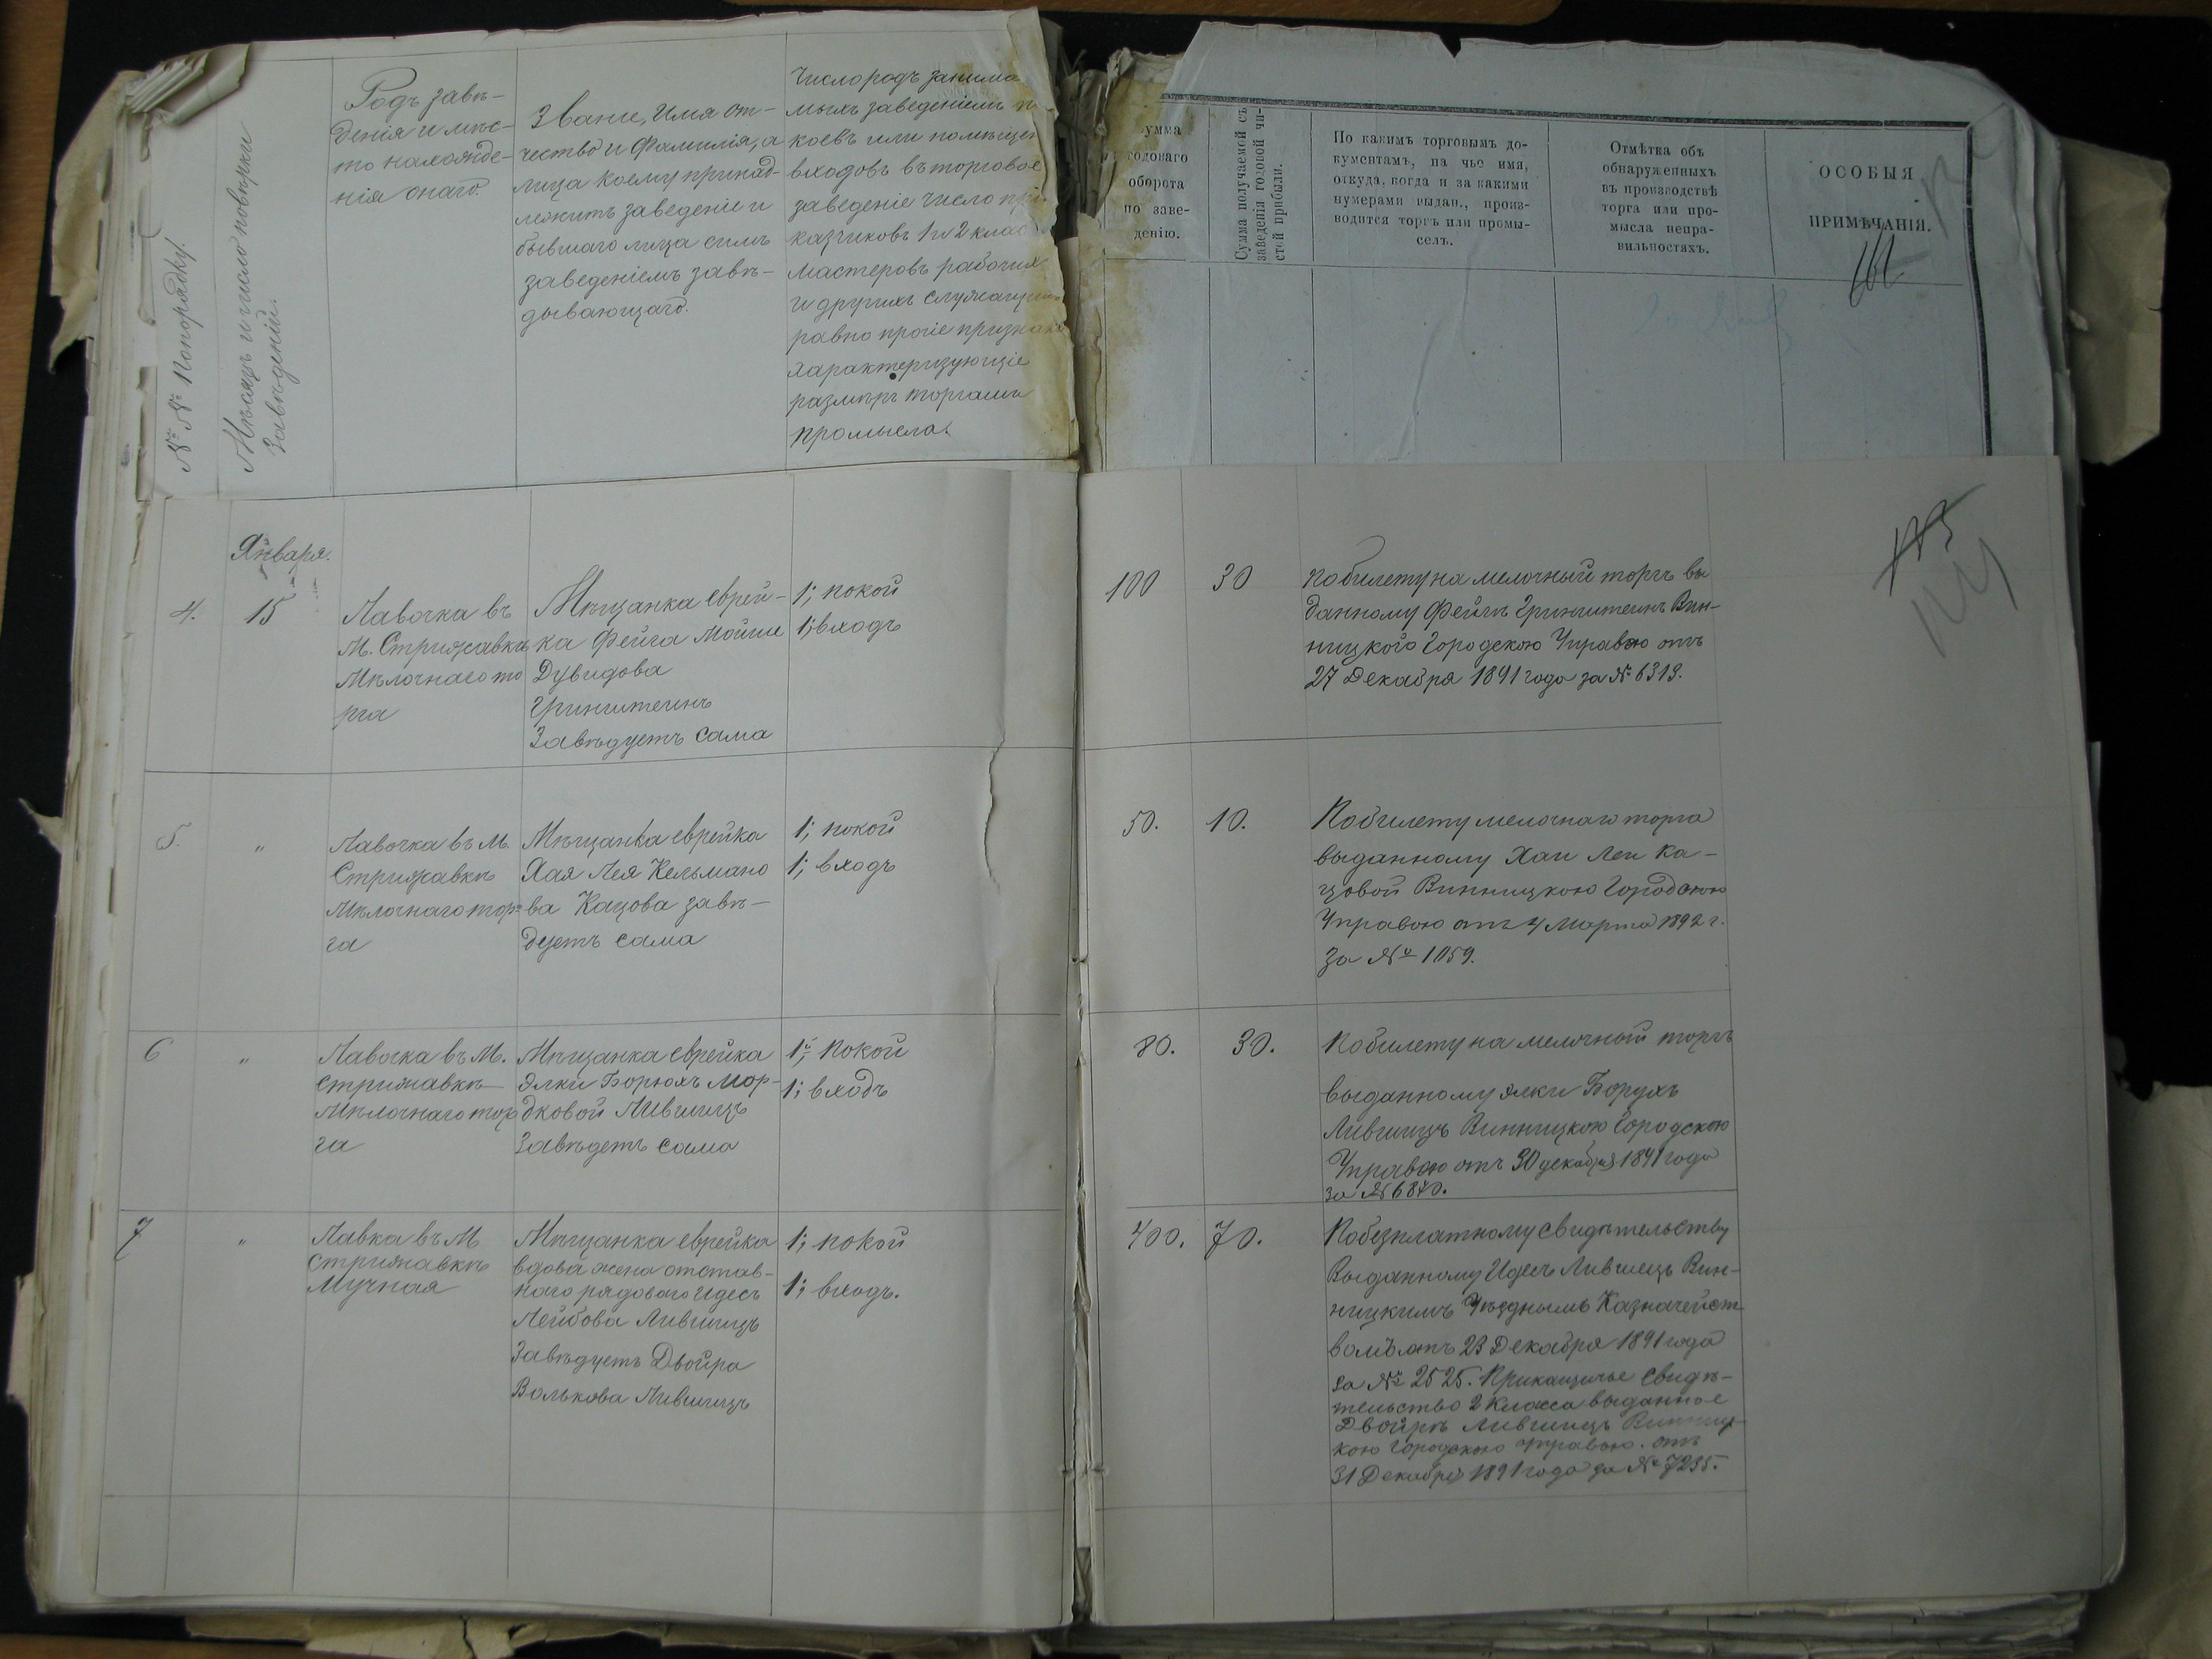 № № по порядку.
Мѣсяцъ и число повѣрки
Заведеній.
Родъ заве-
денія и мѣс-
то нахожде-
нія онаго.
Званіе, Имя от-
чество и Фамилія, а
лица коему принад-
лежитъ заведеніе и
бывшаго лица симъ
заведеніемъ завѣ-
дывающаго.
Число родъ занима
мыхъ заведеніемъ п
коевъ или помѣщен
входовъ въ торговое
заведеніе число при
казчиковъ 1 и 2 клас
мастеровъ рабочихъ
и другихъ служащихъ
равно прочіе признаки
характеризующіе
размѣръ торга или
промысла.
умма
годоваго
оборота
по заве-
денію.
Сумма получаемой съ
заведенія годовой чи-
стой прибыли.
По какимъ торговымъ до-
кументамъ, на чье имя,
откуда, когда и за какими
нумерами выдан., произ-
водится торгъ или промы-
селъ.
Отмѣтка объ
обнаруженныхъ
въ производствѣ
торга или про-
мысла непра-
вильностяхъ.
ОСОБЫЯ
ПРИМѢЧАНІЯ.
Января.
4.
15
Лавочка въ
М. Стрижавкѣ
Мѣлочнаго то
рга
Мѣщанка еврей-
ка Фейга Мойше
Дувидова
Гринштеинъ
Завѣдуетъ сама
1; покой
1; входъ
100
30
По билету на мелочный торгъ вы
данному Фейгѣ Гринштеинъ Вин-
ницкого Городскою Управою отъ
27 Декабря 1891 года за № 6313.
5.
"
Лавочка въ М.
Стрижавкѣ
Мѣлочнаго тор-
га
Мѣщанка еврейка
Хая Лея Кельмано
ва Кацова завѣ-
дуетъ сама
1; покой
1; входъ
50.
10.
По билету мелочнаго торга
выданному Хаи Леи Ка-
цовой Винницкою Городскою
Управою отъ 4 Марта 1892 г.
За № 1059.
6
"
Лавочка въ М.
Стрижавкѣ
Мѣлочнаго тор
га
Мѣщанка еврейка
Элки Борюхъ Мор-
дковой Лившицъ
Завѣдетъ сама
1; покой
1; входъ
80.
30.
По билету на мелочный торгъ
выданному Элки Борухъ
Лившицъ Винницкою Городскою
Управою отъ 30 декабря 1891 года
за № 6870.
7
"
Лавка въ М
Стрижавкѣ
Мучная
Мѣщанка еврейка
вдова жена отстав-
ного рядового Идесъ
Лейбова Лившицъ
Завѣдуетъ Двойра
Волькова Лившицъ
1; покой
1; входъ.
400.
70.
По безплатному свидѣтельству
Выданному Идесъ Лившецъ Вин-
ницкимъ Уѣзднымъ Казначейст
вомъ отъ 23 Декабря 1891 года
за № 2525. Прикащичье свидѣ-
тельство 2 класса выданное
Двойрѣ Лившицъ Винниц-
кою Городскою Управою. отъ
31 Декабря 1891 года за № 7235.